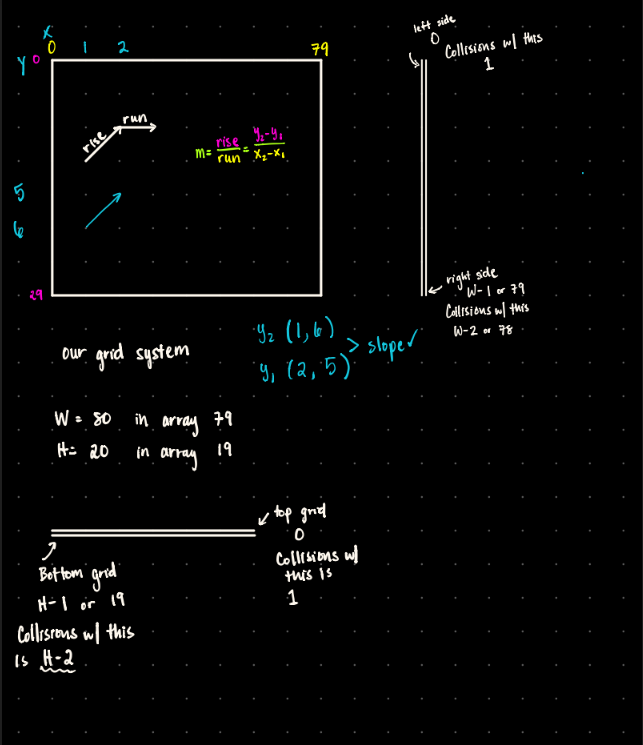 X
0 1 2 79
Y 0
rise
run
m = rise/run = y₂-y₁/x₂-x₁
5
6
29
left side
0
Collisions w/ this
1
right side
W-1 or 79
Collisions w/ this
W-2 or 78
our grid system
y₂ (1,6)
y₁ (2,5)
> slope ✓
W = 80 in array 79
H = 20 in array 19
top grid
0
Collisions w/
this is
1
Bottom grid
H-1 or 19
Collisions w/ this
is H-2